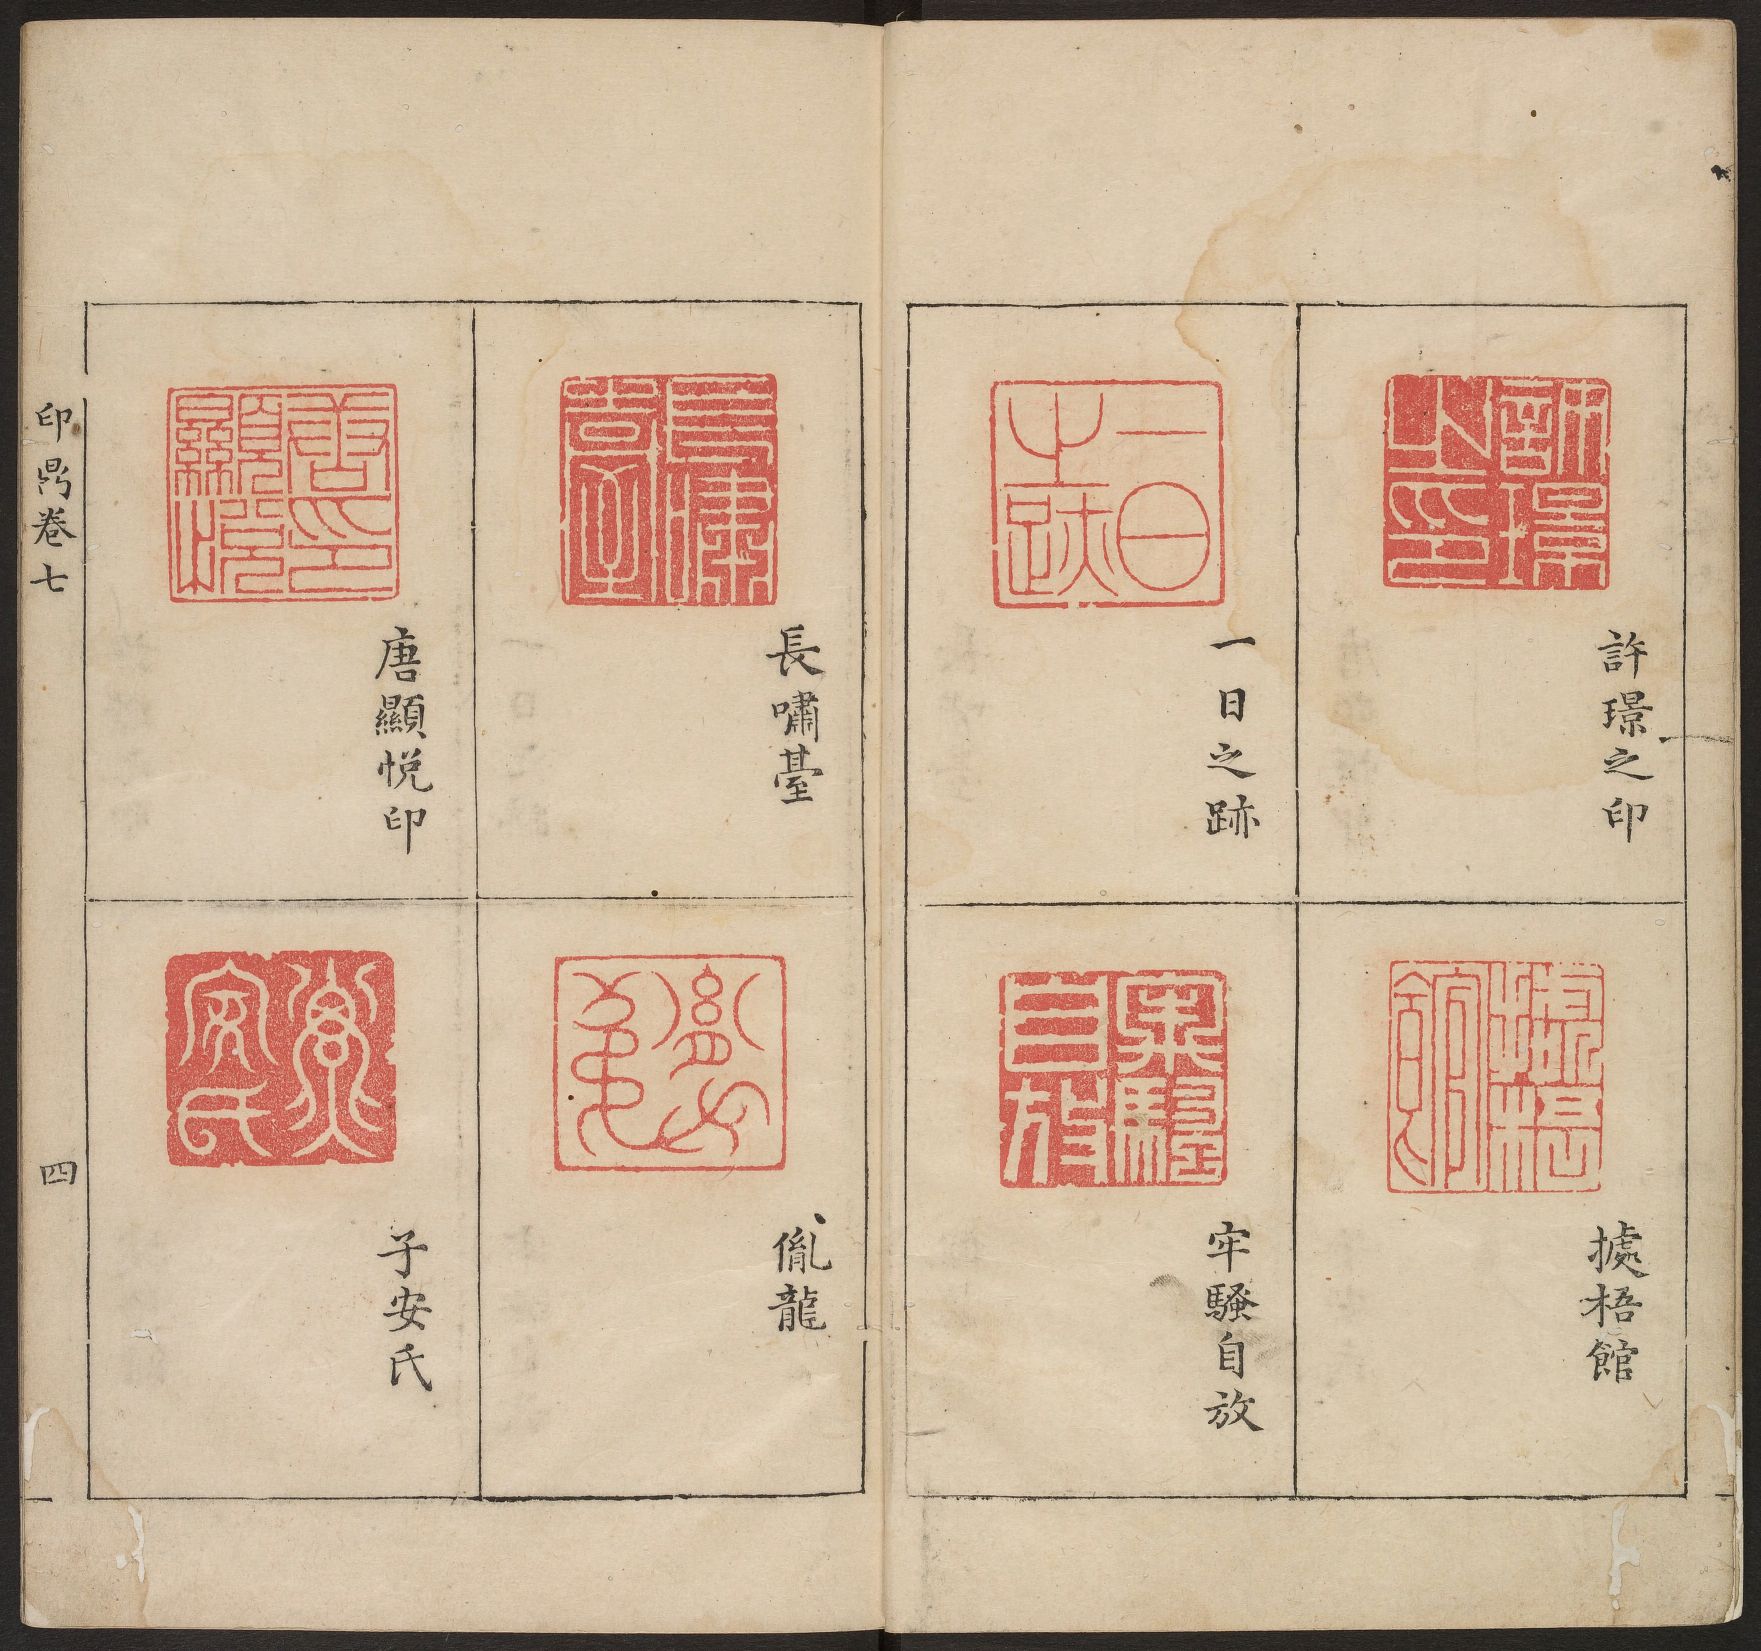 許璟之印
據梧館
一日之跡
牢騷自放
長嘯臺
胤龍
唐顯悅印
子安氏
印鼎卷七
四